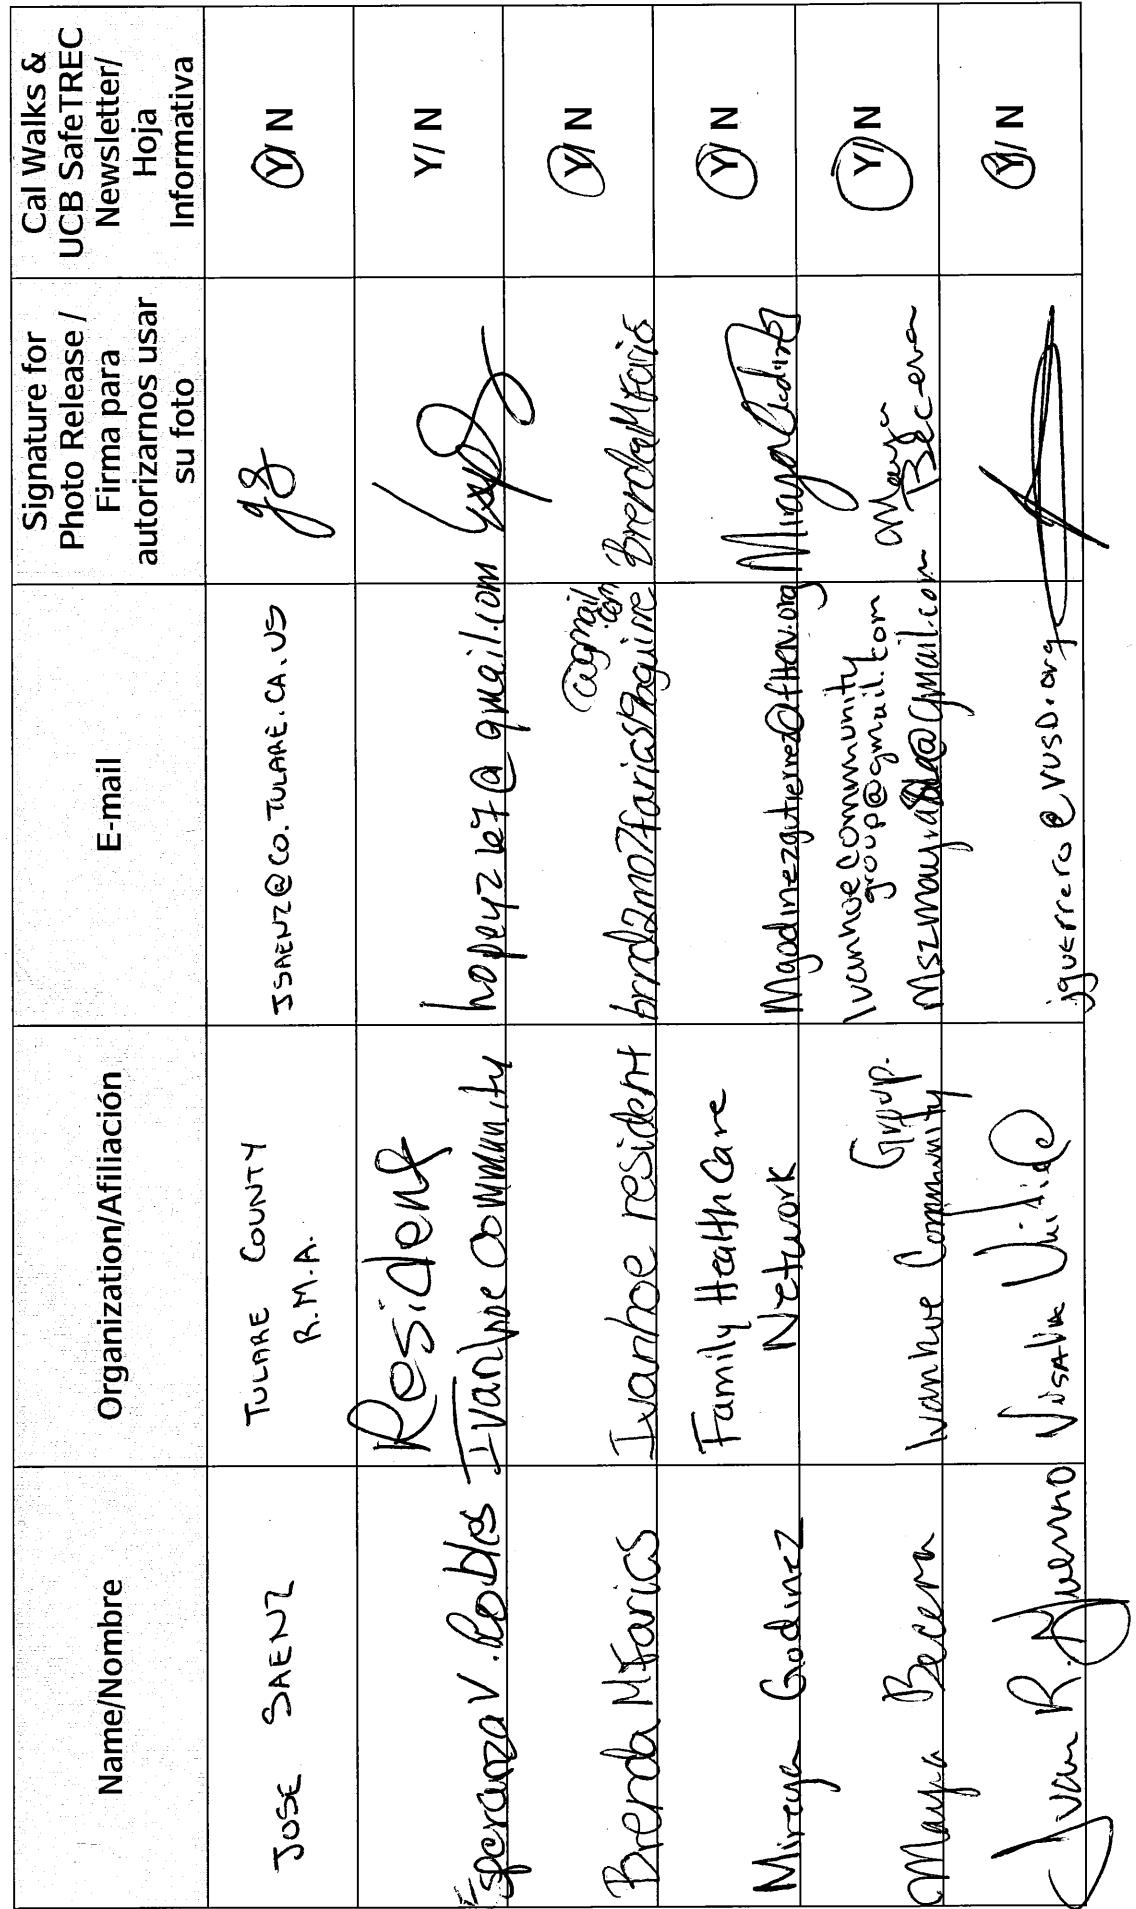 Name/Nombre
Organization/Afiliación
E-mail
Signature for
Photo Release /
Firma para
autorizarnos usar
su foto
Cal Walks &
UCB SafeTREC
Newsletter/
Hoja
Informativa
JOSE SAENZ
TULARE COUNTY
R.M.A.
JSAENZ@CO.TULARE.CA.US
Y/N
Esperanza V. Robles
Resident
Ivanhoe Community
hopeyz67@gmail.com
Y/N
Brenda M Farias
Ivanhoe resident
@gmail
.com
Brenda M Farias
Y/N
Mireya Godinez
Family HealthCare
Network
Mgodinezgutierrez@fhcn.org
Mireya Godinez
Y/N
Mayra Becerra
Ivanhoe Community
Group.
Ivanhoecommunity
group@gmail.com
Mayra
Becerra
Y/N
Juan R. Guerrero
Visalia Unified
jguerrero@vusd.org
Y/N